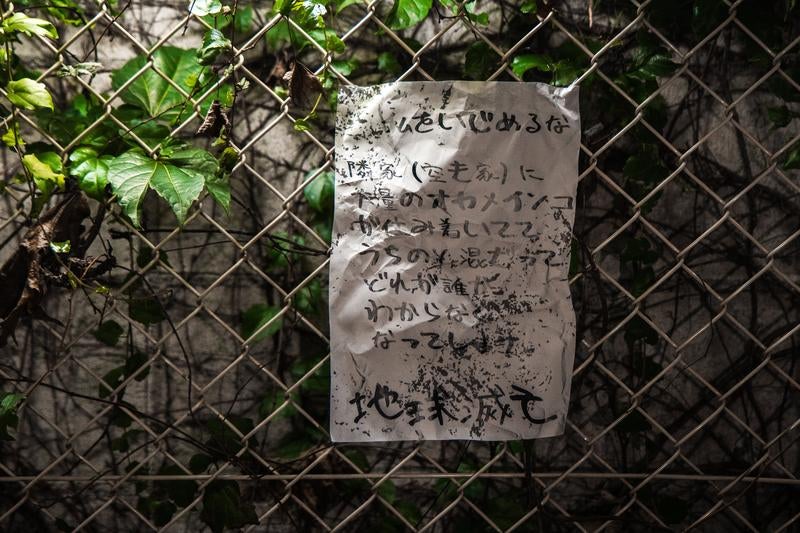 をいじめるな
隣家(空き家)に
大量のオカメインコ
が住み着いてて
うちの混ざって
どれが誰だ
わからなく
なってしまう
地球滅亡